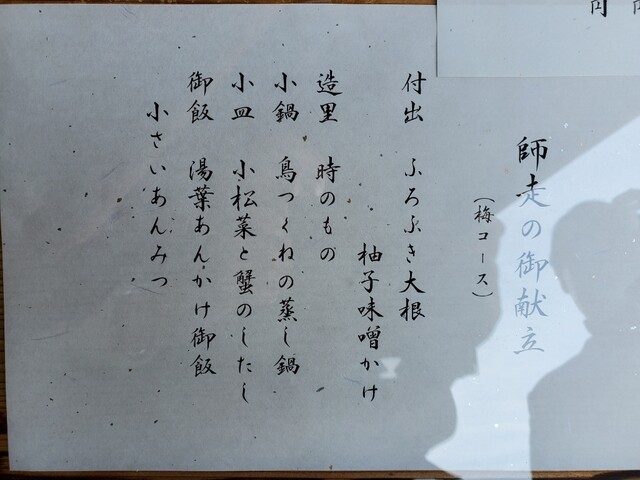 円
円
師走の御献立
(梅コース)
付出 ふろふき大根
柚子味噌かけ
造里 時のもの
小鍋 鳥つくねの蒸し鍋
小皿 小松菜と蟹のしたし
御飯 湯葉あんかけ御飯
小さいあんみつ